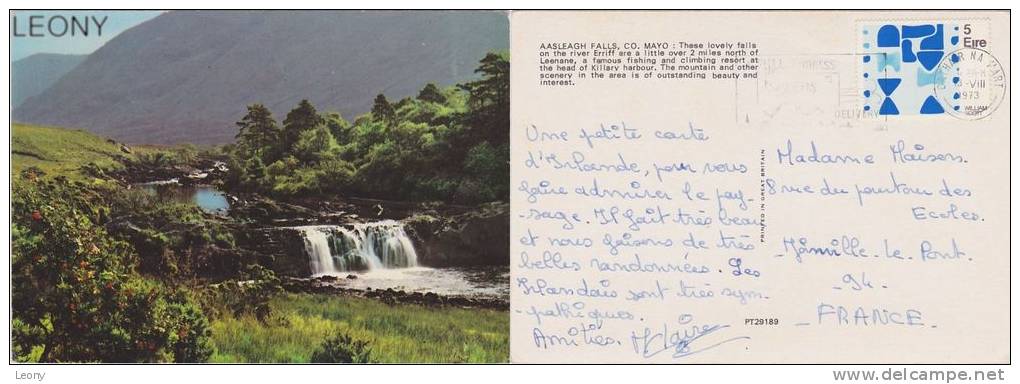 LEONY
AASLEAGH FALLS, CO. MAYO : These lovely falls
on the river Erriff are a little over 2 miles north of
Leenane, a famous fishing and climbing resort at
the head of Killary harbour. The mountain and other
scenery in the area is of outstanding beauty and
interest.
5
Eire
WILLIAM
SCOTT
VIII
1973
DELIVERY
Une petite carte
d'Irlande, pour vous
faire admirer le pay-
-sage. Il fait très beau
et nous faisons de très
belles randonnées. Les
Irlandais sont très sym-
pathiques.
Amitiés.
PRINTED IN GREAT BRITAIN
Madame
8 rue du des
Ecoles.
-Joinville-le-Pont.
-94-
-FRANCE-
PT29189
Leony
http://www.delcampe.net